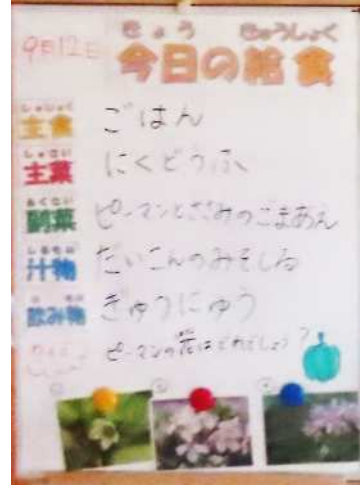 きょう きゅうしょく
9月12日 今日の給食
しゅしょく
主食 ごはん
しゅさい
主菜 にくどうふ
ふくさい
副菜 ピーマンとささみのごまあえ
しるもの
汁物 だいこんのみそしる
の もの
飲み物 ぎゅうにゅう
ピーマンの花はどれでしょう?
① ② ③